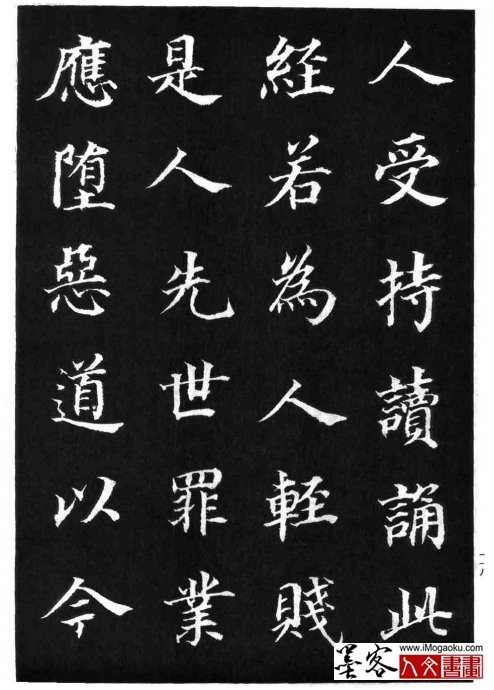 人受持讀誦此
経若為人輕賤
是人先世罪業
應堕惡道以今
一八
www.iMogaoku.com
墨客人文書畫